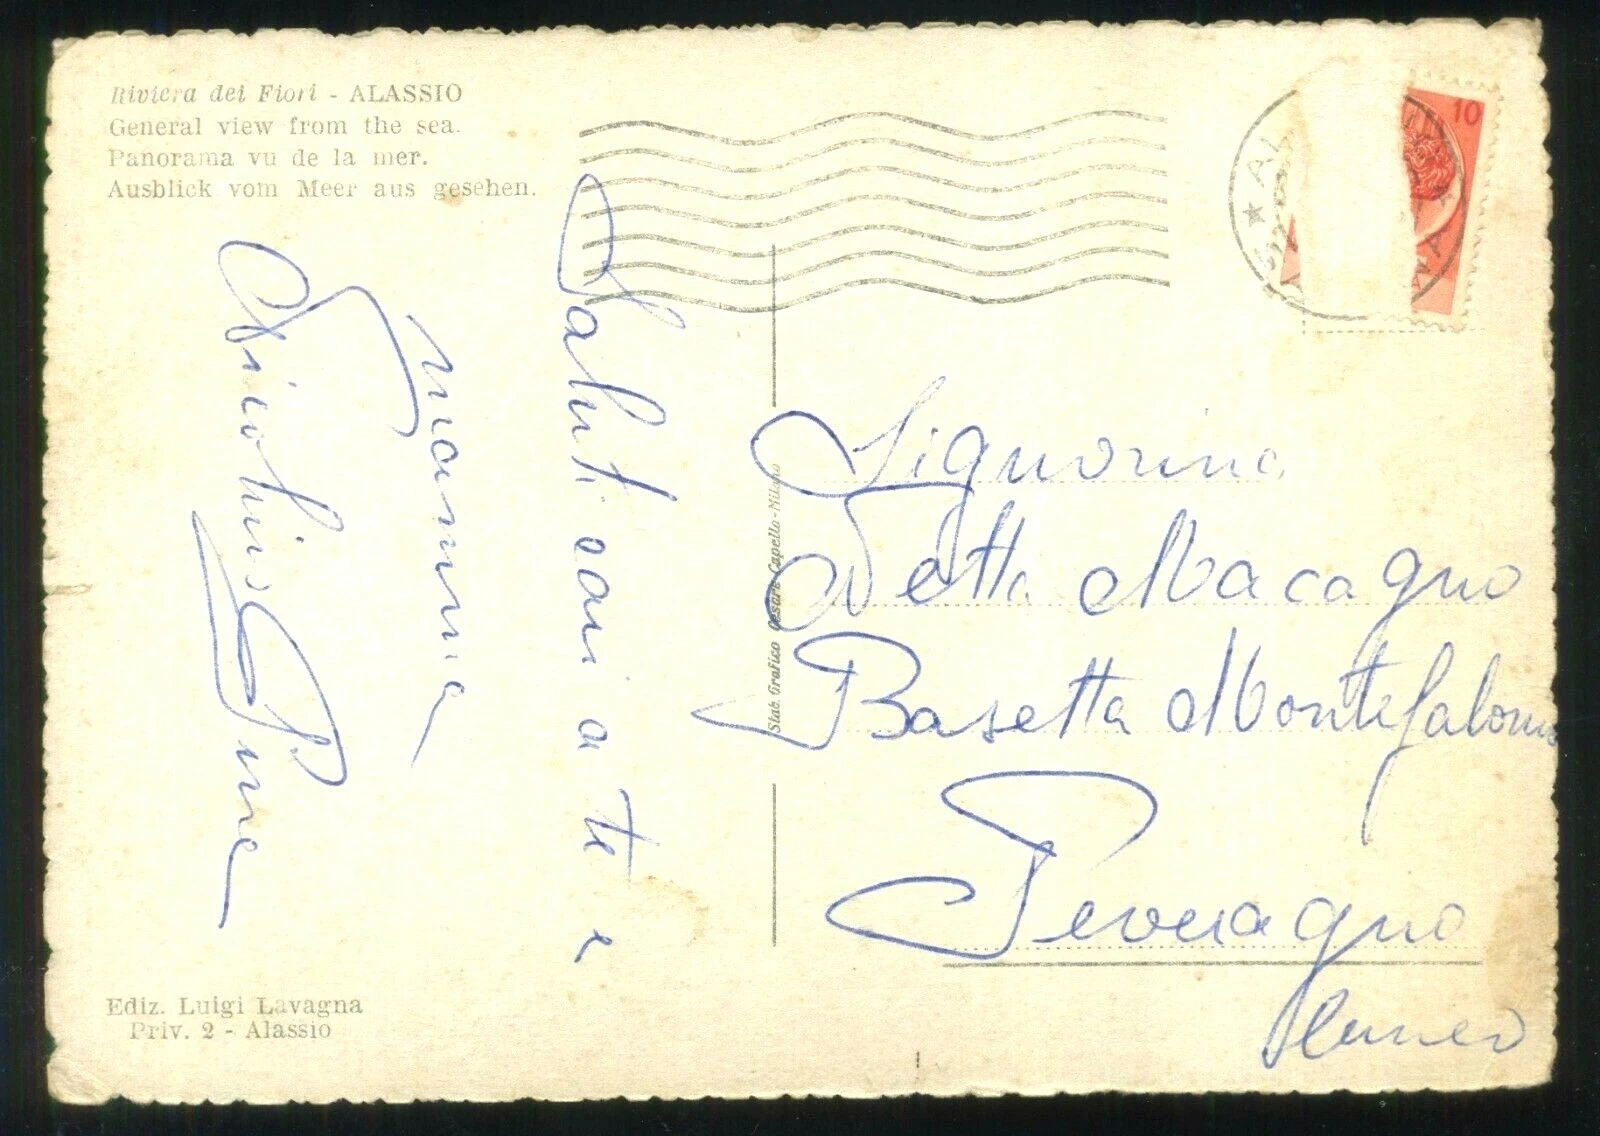 Riviera dei Fiori - ALASSIO
General view from the sea.
Panorama vu de la mer.
Ausblick vom Meer aus gesehen.
10
Saluti cari a te e
mamma
Pina
Stab. Grafico Cesare Capello - Milano
Signorina
Netta Macagno
Basetta Montefalonio
Peveragno
Cuneo
Ediz. Luigi Lavagna
Priv. 2 - Alassio